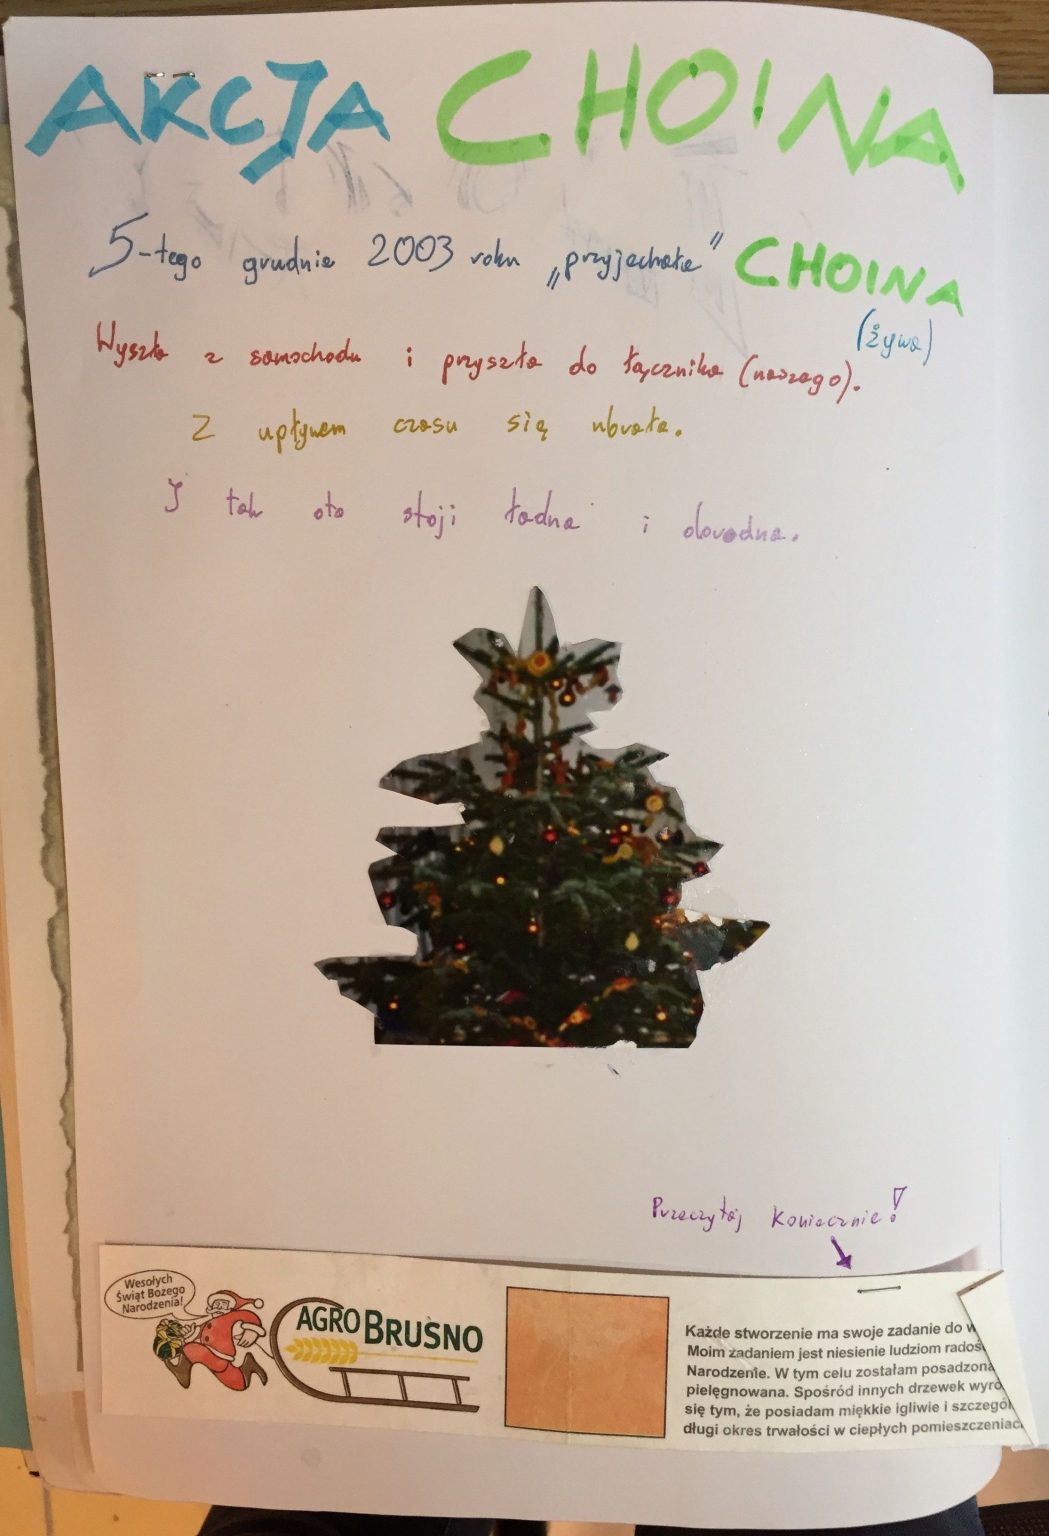 AKCJA CHOINA
5-tego grudnia 2003 roku „przyjechała” CHOINA
(żywa)
Wyszła z samochodu i przyszła do łącznika (naszego).
Z upływem czasu się ubrała.
I tak oto stoji ładna i dorodna.
Przeczytaj koniecznie!
Wesołych
Świąt Bożego
Narodzenia!
AGRO BRUSNO
Każde stworzenie ma swoje zadanie do w
Moim zadaniem jest niesienie ludziom radoś
Narodzenie. W tym celu zostałam posadzona
pielęgnowana. Spośród innych drzewek wyró
się tym, że posiadam miękkie igliwie i szczegól
długi okres trwałości w ciepłych pomieszczeniac